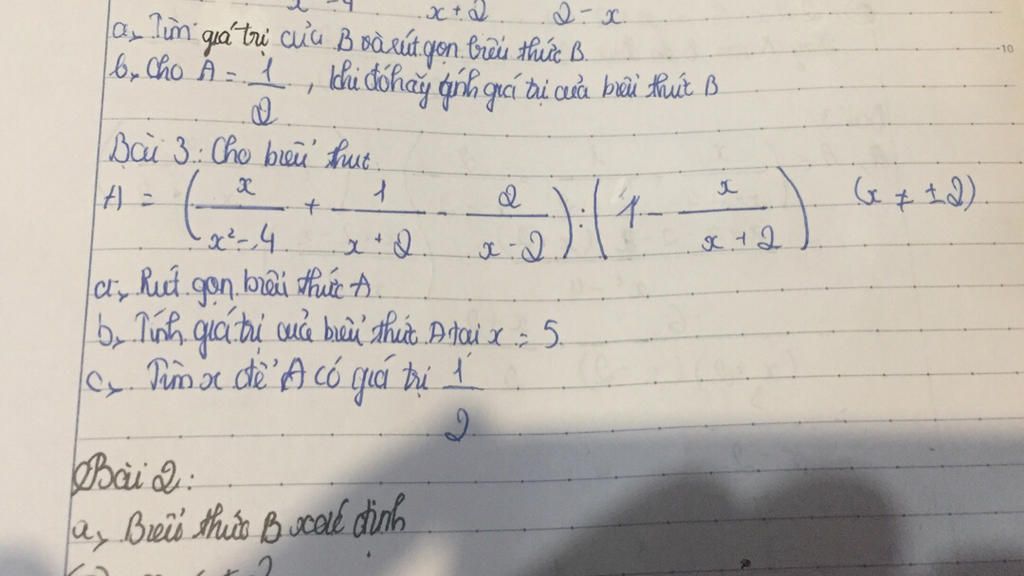 x - 4 x + 2 2 - x
a, Tìm giá trị của B và rút gọn biểu thức B.
b, Cho A = 1/2, khi đó hãy tính giá trị của biểu thức B
Bài 3: Cho biểu thưc
A = (x/(x² - 4) + 1/(x + 2) - 2/(x - 2)) : (1 - x/(x + 2)) (x ≠ ±2)
a, Rút gọn biểu thức A.
b, Tính giá trị của biểu thức A tại x = 5.
c, Tìm x để A có giá trị 1/2
Bài 2:
a, Biểu thức B xác định